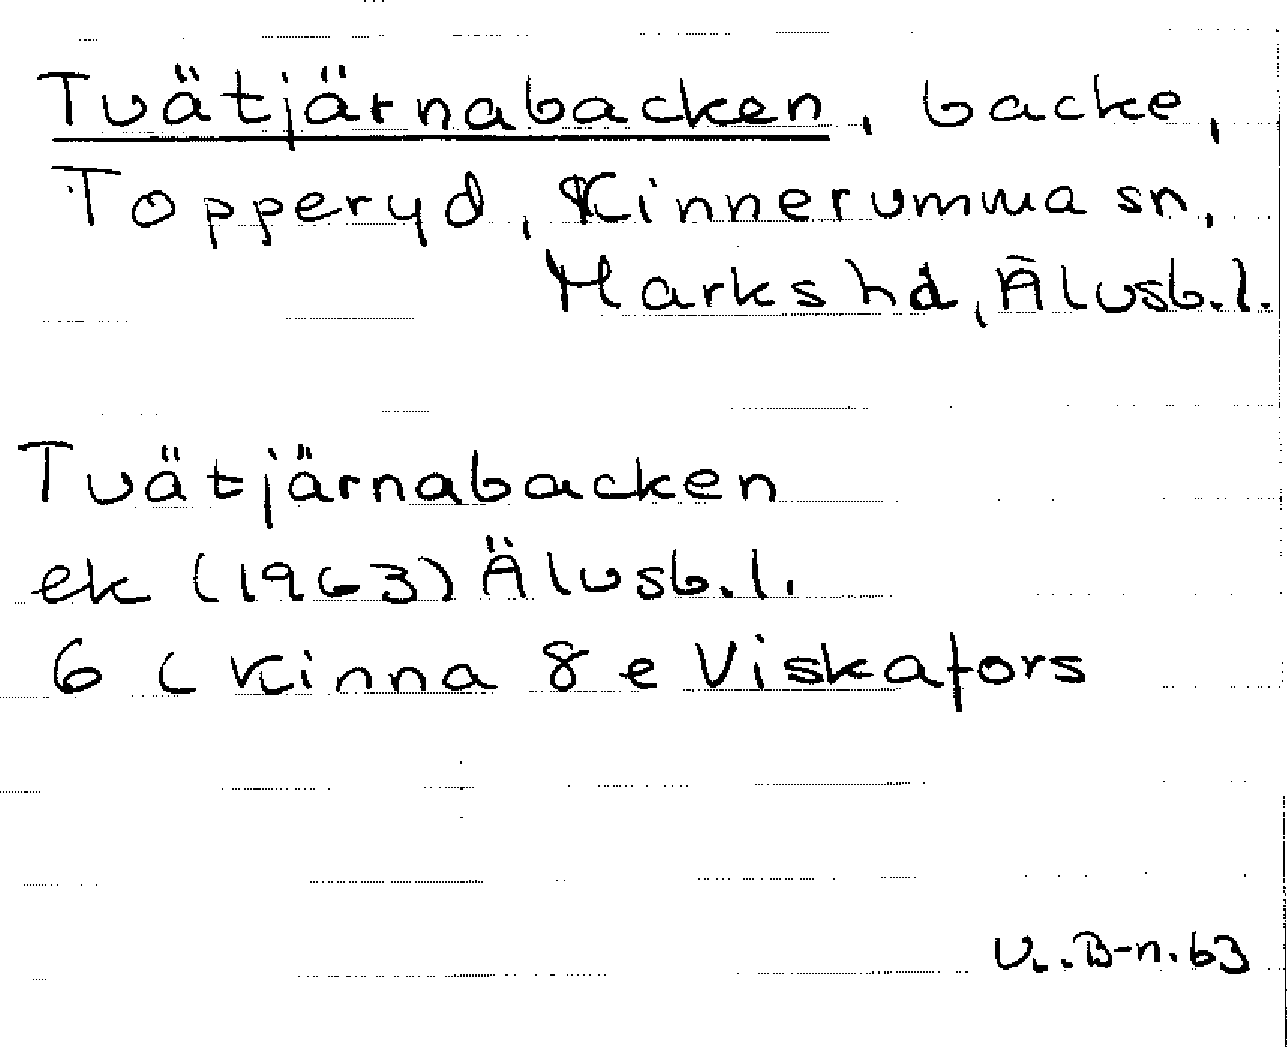 Tvätjärnabacken, backe,
Topperyd, Kinnerumma sn,
Marks hd, Älvsb.l.
Tvätjärnabacken
ek (1963) Älvsb.l.
6 C Kinna 8 e Viskafors
V..B-n.63